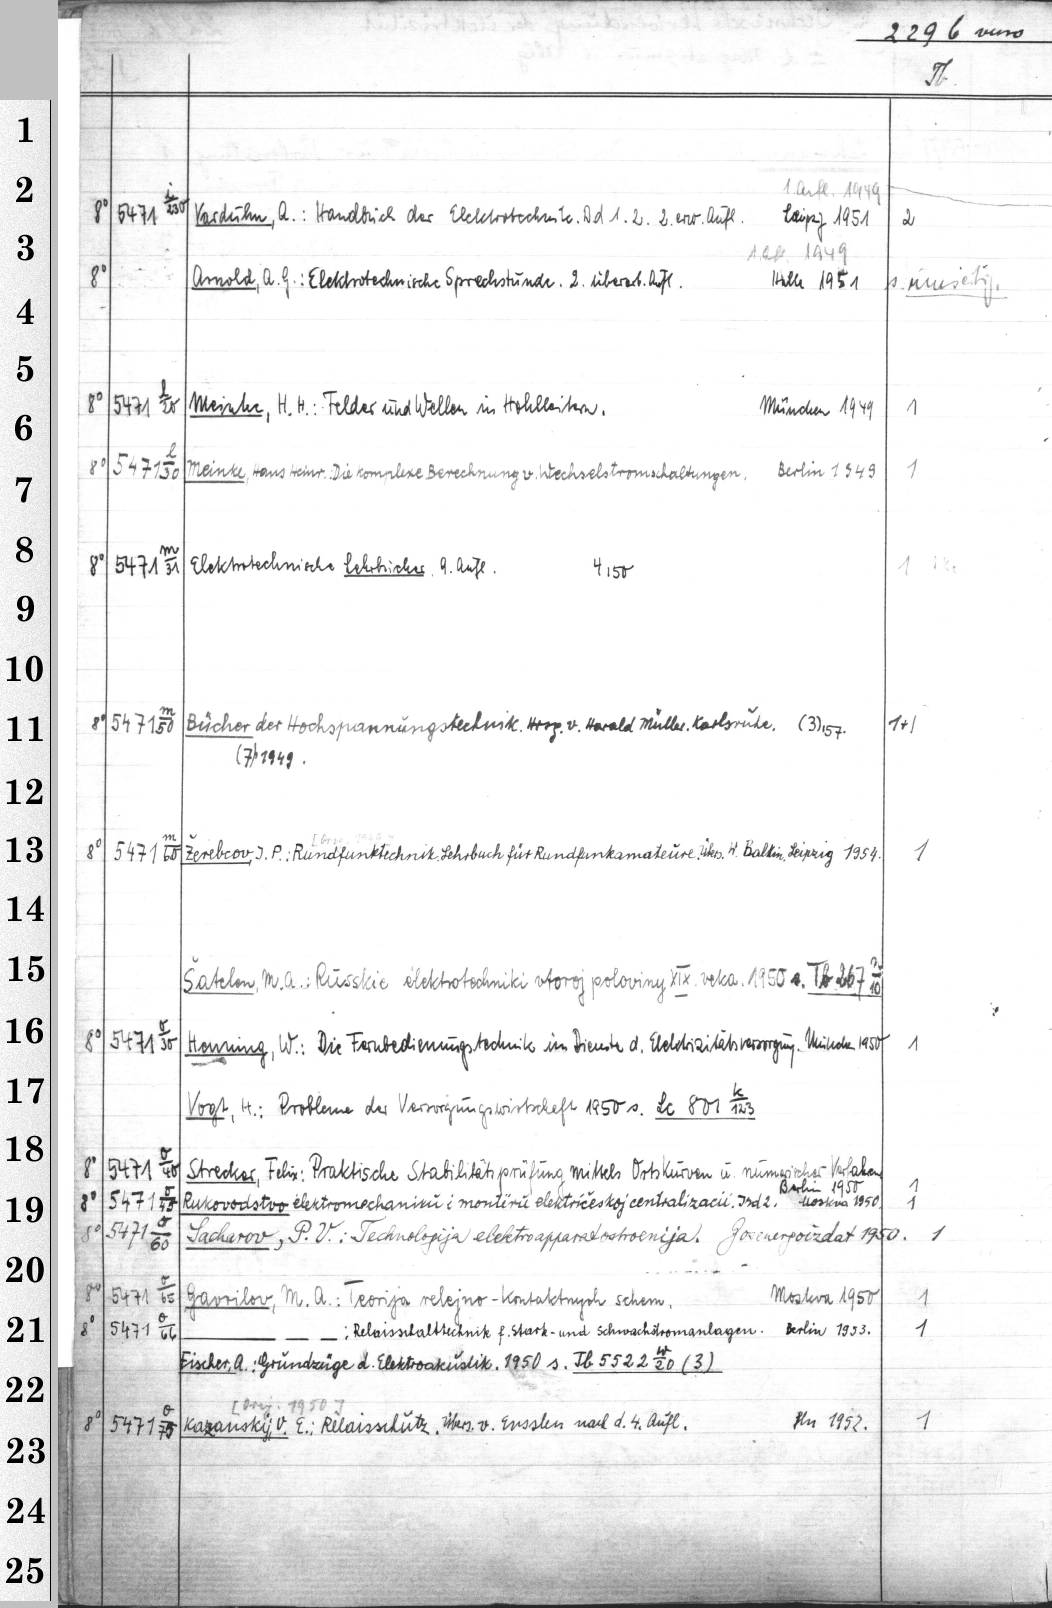 229 6 verso
Tb.
1
2
1. Aufl. 1949
8° 5471 i/230 Karduhn, A.: Handbuch der Elektrotechnik. Bd 1. 2. 2. erw. Aufl. Leipz. 1951 2
3
1. Afl. 1949
8° Arnold, A. G.: Elektrotechnische Sprechstunde. 2. überarb. Aufl. Halle 1951 s. umseitig.
4
5
8° 5471 l/20 Meinke, H. H.: Felder und Wellen in Hohlleitern. München 1949 1
6
8° 5471 l/30 Meinke, Hans Heinr.: Die komplexe Berechnung v. Wechselstromschaltungen. Berlin 1949 1
7
8
8° 5471 m/31 Elektrotechnische Lehrbücher. 9. Aufl. 4,50 1
9
10
11
8° 5471 m/50 Bücher der Hochspannungstechnik. Hrsg. v. Harald Müller. Karlsruhe. (3),57. 1+1
(7) 1949.
12
13
8° 5471 m/60 Žerebcov, I. P.: Rundfunktechnik. Lehrbuch für Rundfunkamateure. Übers. W. Balkin. Leipzig 1954. 1
14
15
Šatelen, M. A.: Russkie elektrotechniki vtoroj poloviny XIX. veka. 1950 s. Tb 267 n/10
16
8° 5471 o/30 Henning, W.: Die Fernbedienungstechnik im Dienste d. Elektrizitätsversorgung. München 1950 1
17
Vogt, H.: Probleme der Versorgungswirtschaft 1950 s. Lc 801 k/123
18
8° 5471 o/40 Strecker, Felix: Praktische Stabilitätsprüfung mittels Ortskurven u. numerischer Verfahren
Berlin 1950 1
19
8° 5471 o/45 Rukovodstvo elektromechaniku i monteru električeskoj centralizacii. Izd 2. Moskva 1950. 1
8° 5471 o/60 Sacharov, P. V.: Technologija elektroapparatostroenija. Gosenergoizdat 1950. 1
20
8° 5471 o/65 Gavrilov, M. A.: Teorija relejno-kontaktnych schem. Moskva 1950 1
21
8° 5471 o/66 ______ __ __: Relaisschalttechnik f. Stark- und Schwachstromanlagen. Berlin 1953. 1
Fischer, A.: Grundzüge d. Elektroakustik. 1950 s. Tb 5522 w/20 (3)
22
[Orig. 1950]
8° 5471 o/75 Kazanskij, V. E.: Relaisschutz. Übers. v. Ensslen nach d. 4. Aufl. Bln 1952. 1
23
24
25